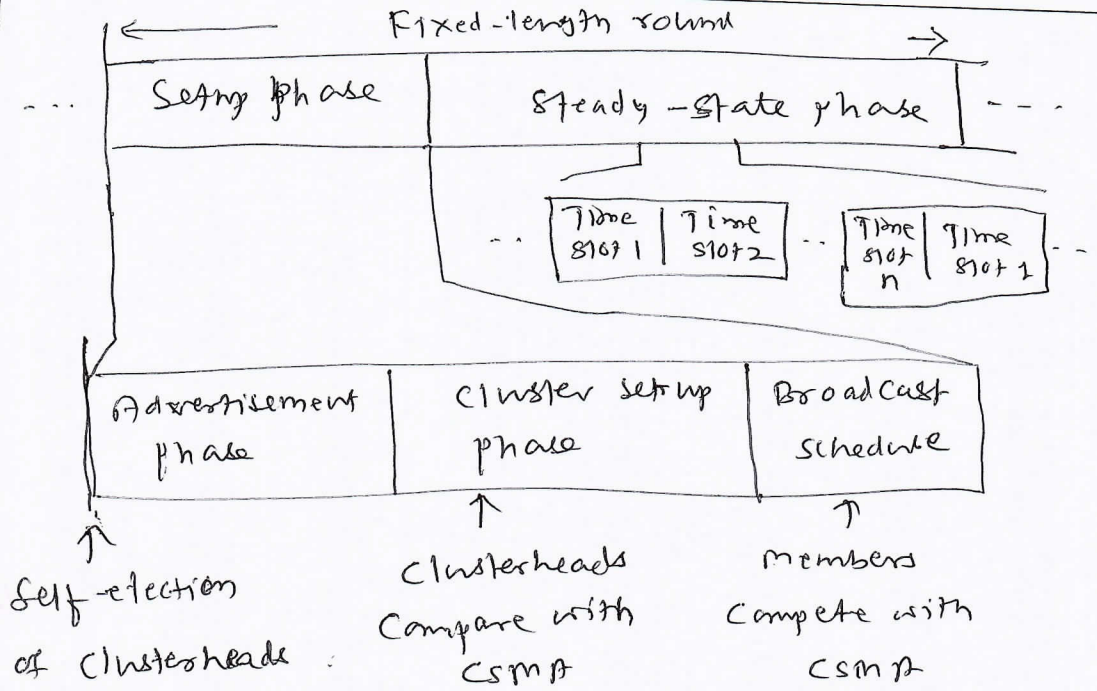 Fixed-length round
Setup phase
Steady-state phase
Time
slot 1
Time
slot 2
Time
slot
n
Time
slot 1
Advertisement
phase
Cluster setup
phase
BroadCast
schedule
Self-election
of Clusterheads
Clusterheads
Compare with
CSMA
members
Compete with
CSMA